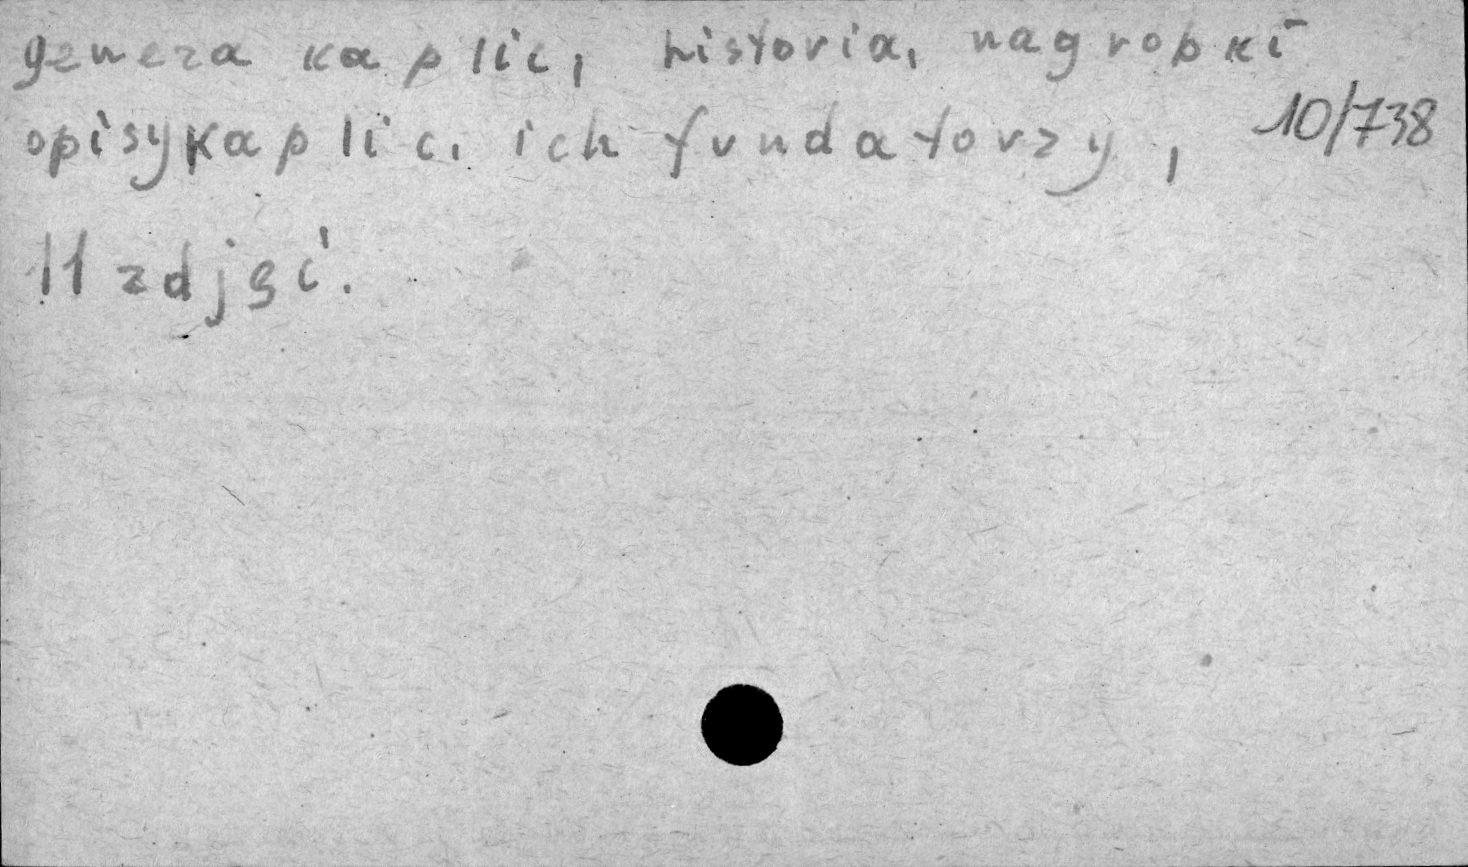 geneza kaplic, historia, nagrobki
opisy kaplic, ich fundatorzy, 10/738
11 zdjęć.